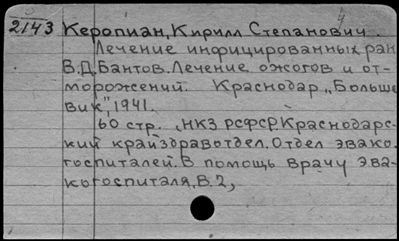 2143 Керопиан, Кирилл Степанович.
Лечение инфицированных ран
В.Д.Бантов. Лечение ожогов и от-
морожений. Краснодар „Больше
вик", 1941.
60 стр., НКЗ РСФСР. Краснодарс-
кий крайздравотдел. Отдел эвако.
госпиталей. В помощь врачу эва-
когоспиталя. В.2,